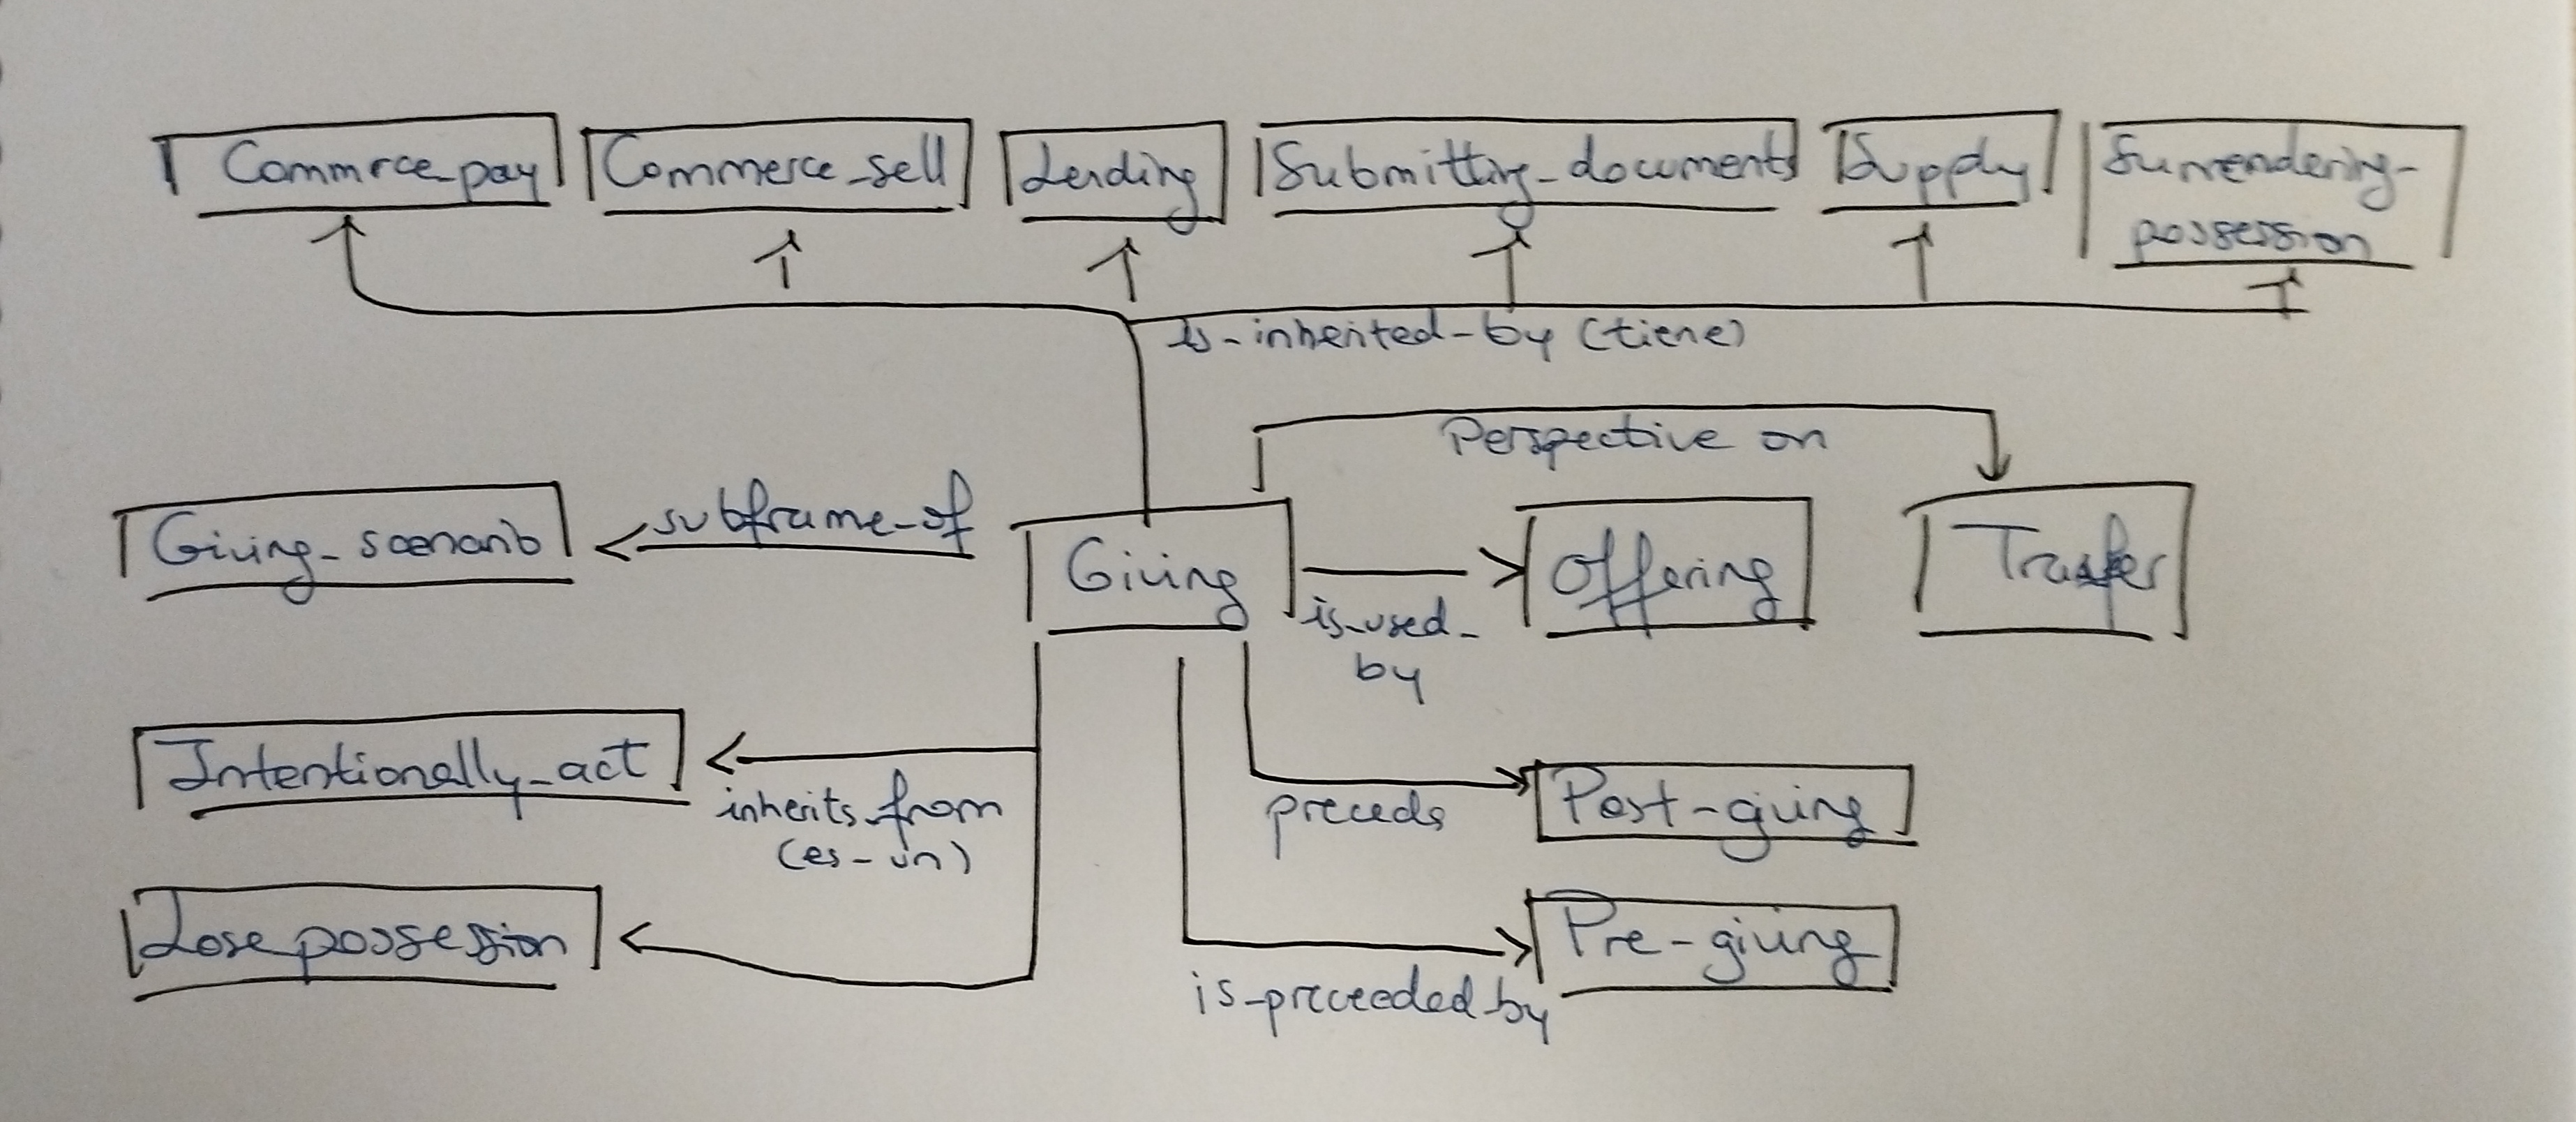 Commrce_pay
Commerce_sell
Lending
Submitting_documents
Supply
Surrendering_
possession
is_inherited_by (tiene)
Perspective on
subframe_of
Giving_scenario
Giving
Offering
Trasfer
is_used_
by
Intentionally_act
inherits_from
(es_un)
preceds
Post-giving
Lose_possession
Pre-giving
is_preceeded_by